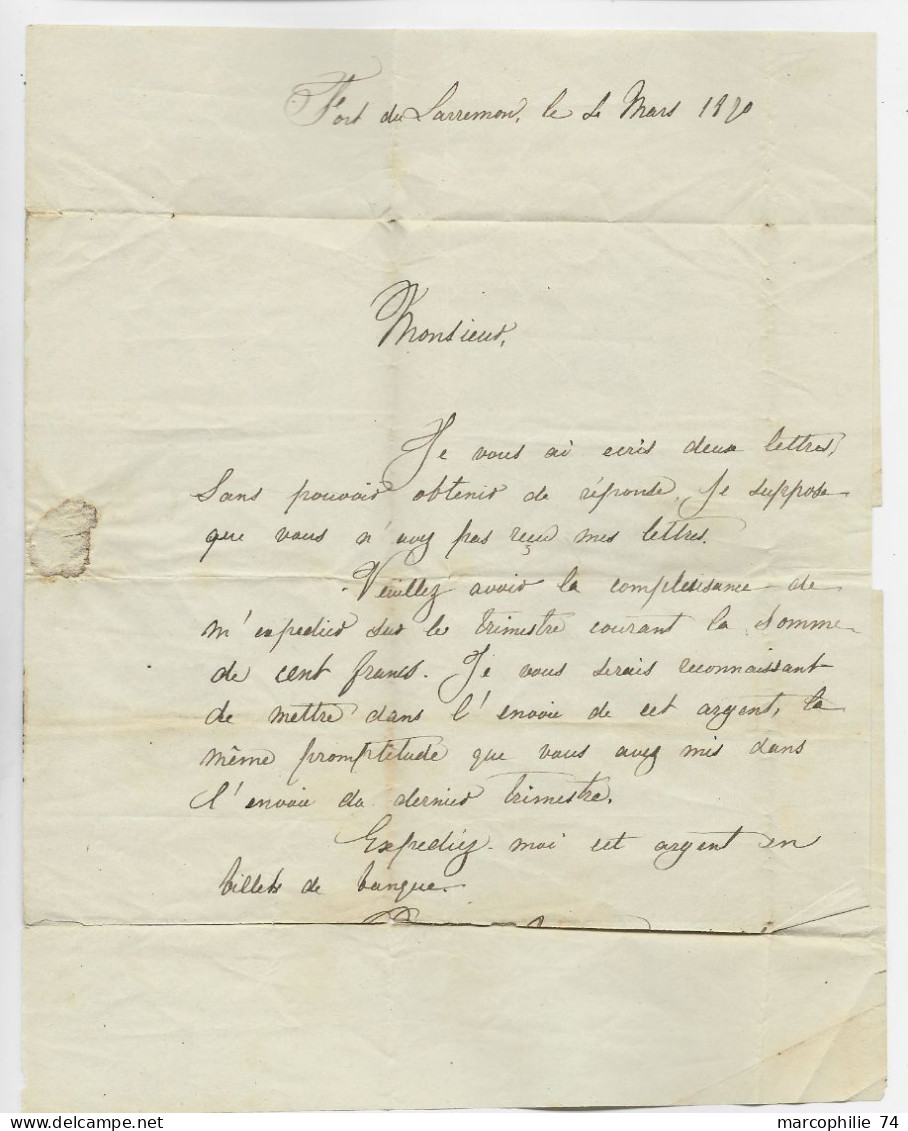 Fort du Larremon, le 4 Mars 1870
Monsieur,
Je vous ai ecris deux lettres,
Sans pouvoir obtenir de réponse, je suppose
que vous n'avez pas reçu mes lettres.
Veuillez avoir la complaisance de
m'expedier sur le trimestre courant la somme
de cent francs. Je vous serais reconnaissant
de mettre dans l'envoie de cet argent, la
même promptitude que vous avez mis dans
l'envoie du dernier trimestre.
Expediez-moi cet argent en
billets de banque.
marcophilie 74